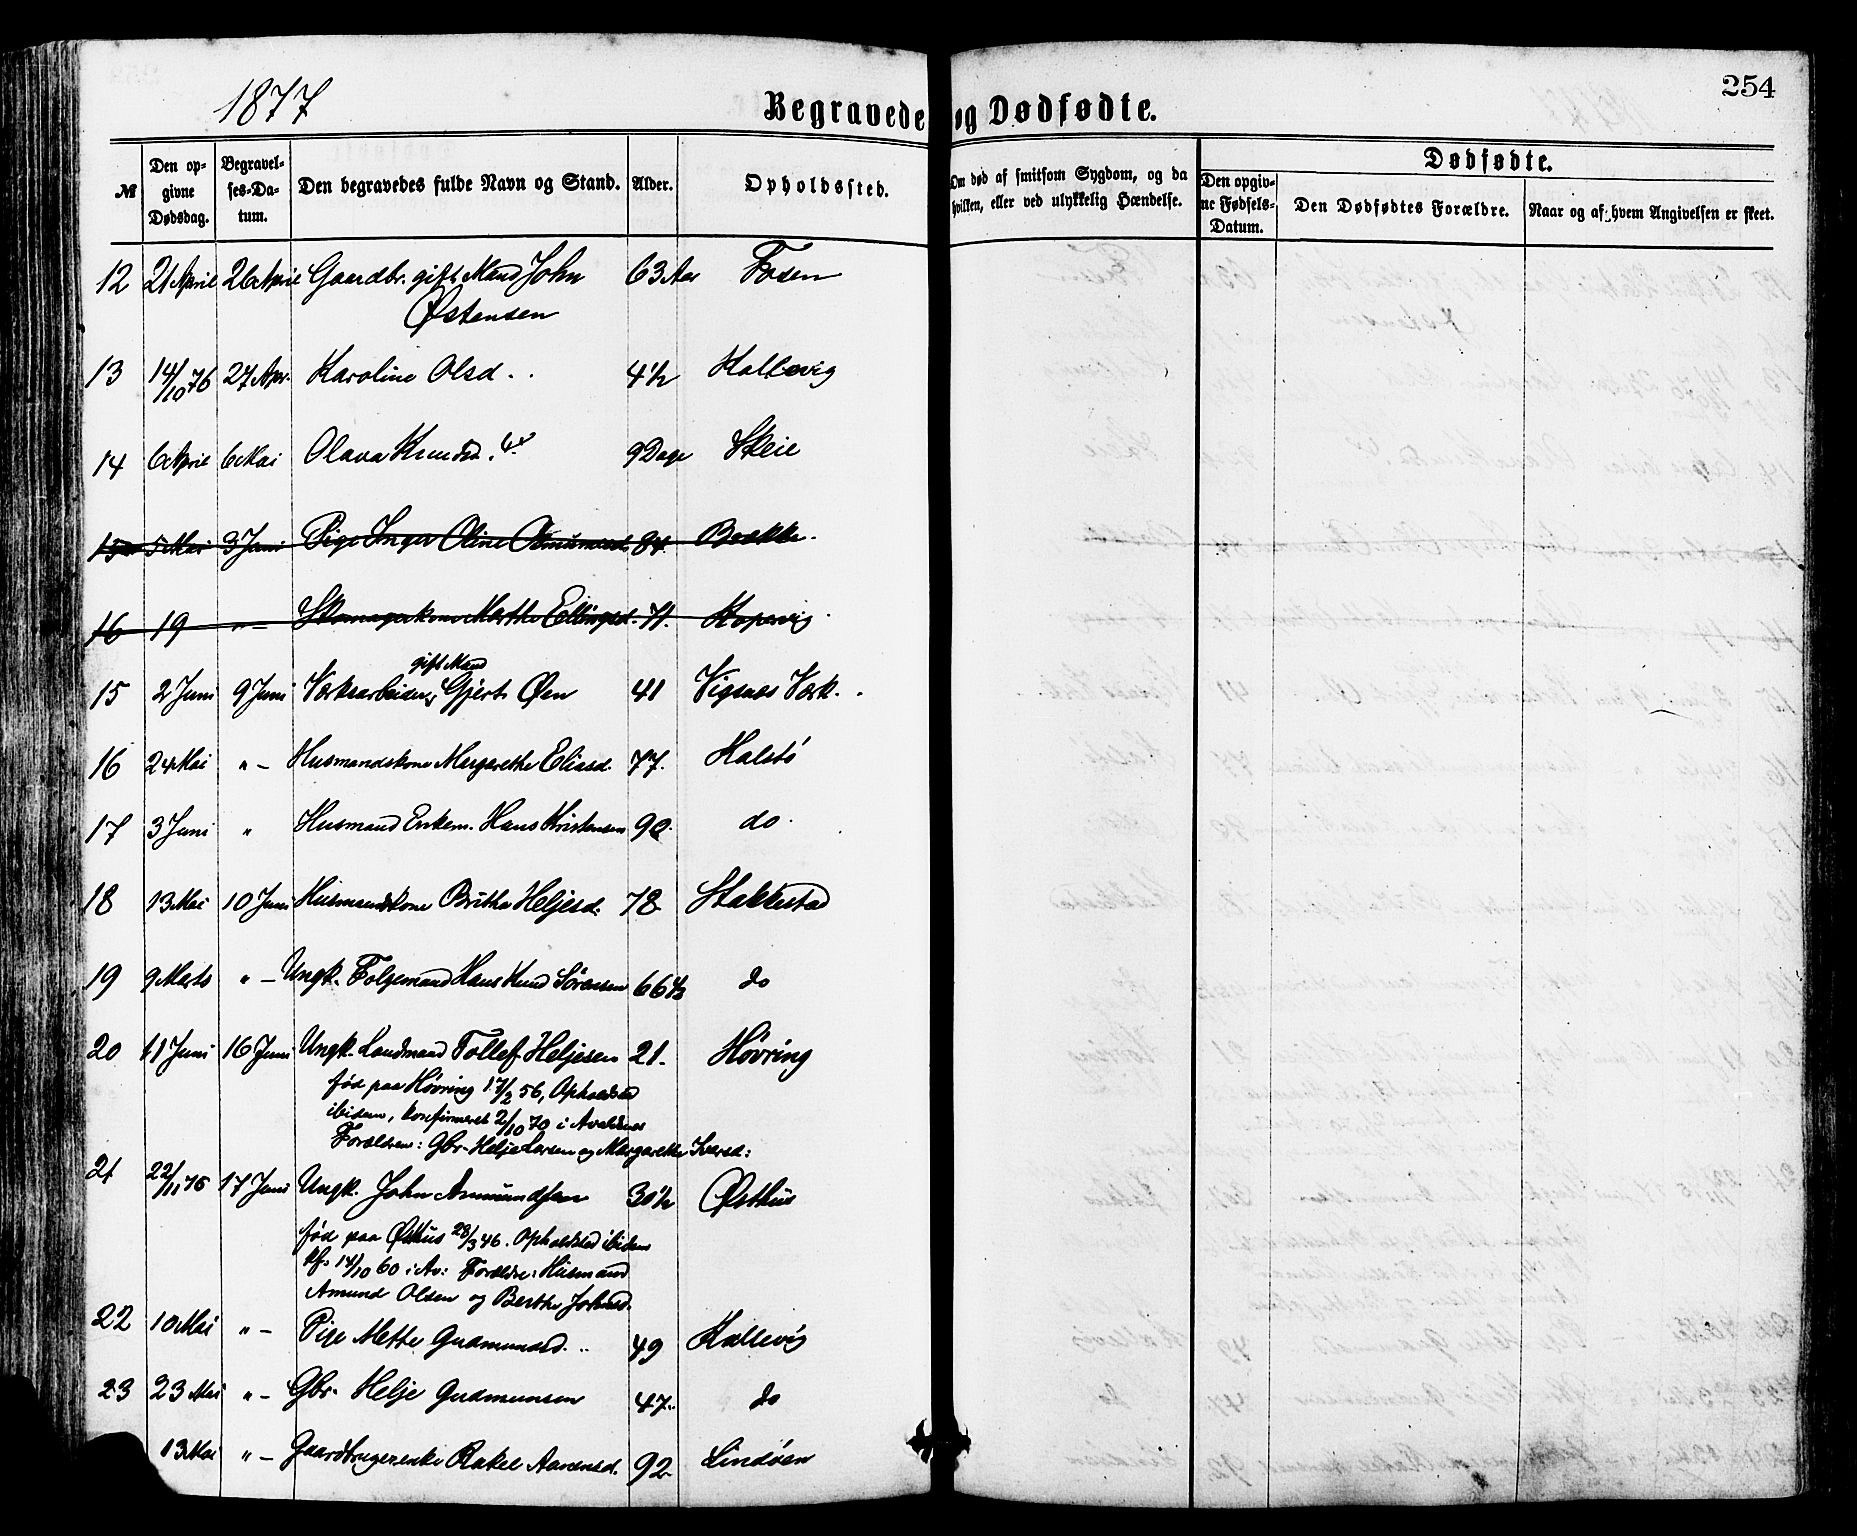 1877
Begravede og Dødfødte.
254
№ | Den opgivne Dødsdag. | Begravelses-Datum. | Den begravedes fulde Navn og Stand. | Alder. | Opholdssted. | Om død af smitsom Sygdom, og da hvilken, eller ved ulykkelig Hændelse. | Dødfødte.
Den opgivne Fødsels-Datum. | Den Dødfødtes Forældre. | Naar og af hvem Angivelsen er skeet.
12 21 April 26 April Gaardbr. gift Mand John 63 Aar Fosen
Østensen
13 14/10 76 27 Apr. Karoline Olsd. 4 1/2 Hallevig
14 6 April 6 Mai Olava Knudsd. 9 Dage Skeie
15 5 Mai 3 Juni Pige Inger Oline Asmundsd. 84 Brække.
16 19 „ – Skomagerkone Marthe Ellingsd. 71. Kopervig
gift Mand
15 2 Juni 9 Juni Værksarbeider, Gjert Øen 41 Vigsnæs Værk.
16 24 Mai „ – Husmandskone Margrethe Eliasd. 77. Halstö
17 3 Juni „ Husmand Enkem. Hans Kristensen 90. do.
18 13 Mai 10 Juni Husmandskone Britha Heljesd. 78 Stakkestad
19 9 Marts „ – Ungk. Folgemand Hans Knud Sörensen 66 do
20 11 Juni 16 Juni Ungk. Landmand Tollef Heljesen 21. Hövring
fød paa Hövring 17/2 56, Opholdsted
ibidem, konfirmeret 2/10 70 i Avaldsnes
Forældren: Gbr. Helje Larsen og Margarethe Iversd:
21 22/11 76 17 Juni Ungk. John Amundsen 30 1/2 Østhus
fød paa Østhus 28/3 46. Opholdsted ibidem
kf. 14/10 60 i Av: Forældre: Husmand
Amund Olsen og Berthe Johnsd.
22 10 Mai „ – Pige Mette Gudmundsd. 49 Hallevig
23 23 Mai „ – Gbr. Helje Gudmunsen 47. do
13 Mai „ – Gaardbrugerenke Rakel Aanensd. 92 Lindöen